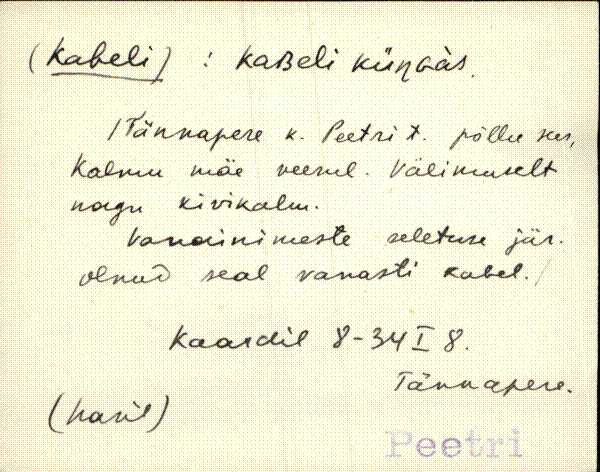 (Kabeli) : kaBeli küŋGàs.
/Tännapere k. Peetri t. põllu sees,
Kalmu mäe veerul. Välimuselt
nagu kivikalm.
Vanainimeste seletuse jär.
olnud seal vanasti kabel./
Kaardil 8-34 I 8.
Tännapere.
(haril)
Peetri